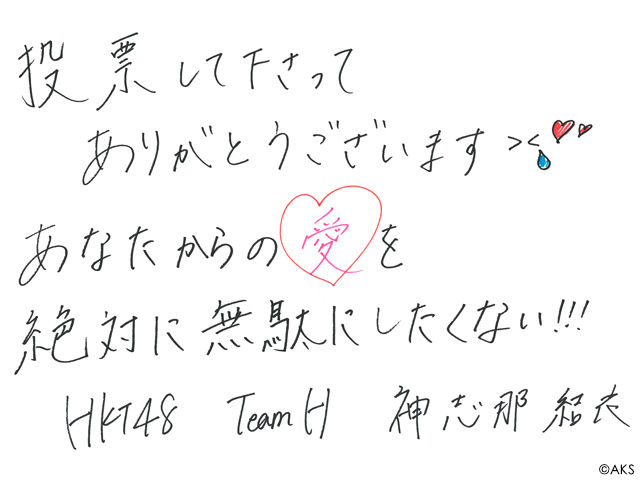 投票して下さって
ありがとうございます ><
あなたからの愛を
絶対に無駄にしたくない!!!
HKT48 TeamH 神志那結衣
©AKS